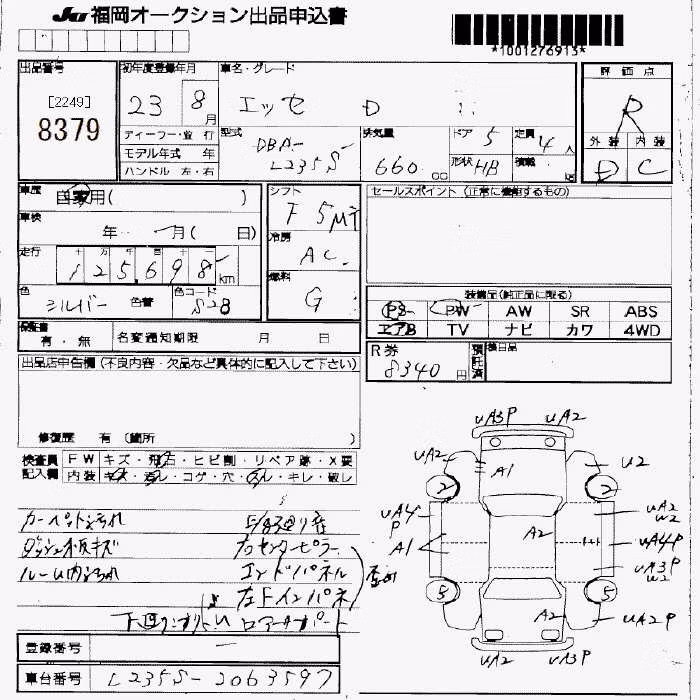 JU 福岡オークション出品申込書
*1001276913*
出品番号 初年度登録年月 車名・グレード 評価点
[2249]
8379
23 8月 エッセ D R
ディーラー・並行 型式 排気量 ドア 5 定員 4人 外装 内装
モデル年式 年 DBA-L235S 660 cc 形状 HB 積載 kg D C
ハンドル 左・右
車歴 自家用( ) シフト F 5MT セールスポイント(正常に機能するもの)
車検 年 一月( 日) 冷房 AC
走行 十 万 千 百 十 一
125,698 km
燃料 G
色 シルバー 色替 色コード S28
装備品(純正品に限る)
PS PW AW SR ABS
エアB TV ナビ カワ 4WD
保証書 有・無 名変通知期限 月 日
R券 8340円 預託済 後日品
出品店申告欄(不良内容・欠品など具体的に記入して下さい)
修復歴 有(箇所 )
検査員記入欄 FW キズ・飛石・ヒビ割・リペア跡・X要
内装 キズ・汚れ・コゲ・穴・スレ・キレ・破レ
カーペット汚れ
ダッシュ板キズ 右センターピラー
ルーム内汚れ エンドパネル
左下インパネ
ロアーサポート
UA3P UA2
UA2 A1 U2
2 2
UA4P UA2 W2
A1 A2 UA4P
UA3P W2
5 5
A2 UA2P
UA2 UA3P
登録番号 ー
車台番号 L235S-2063597